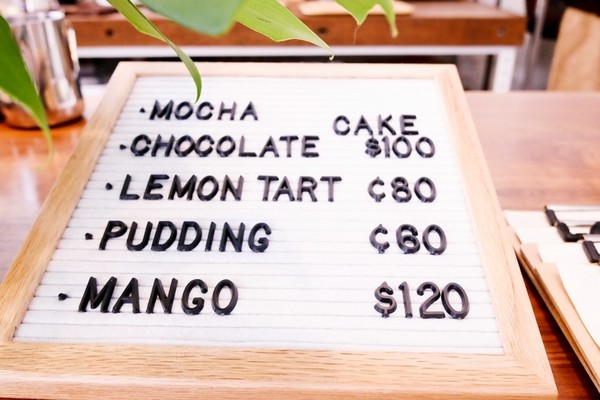 ·MOCHA CAKE
·CHOCOLATE $100
·LEMON TART ¢80
·PUDDING ¢60
·MANGO $120